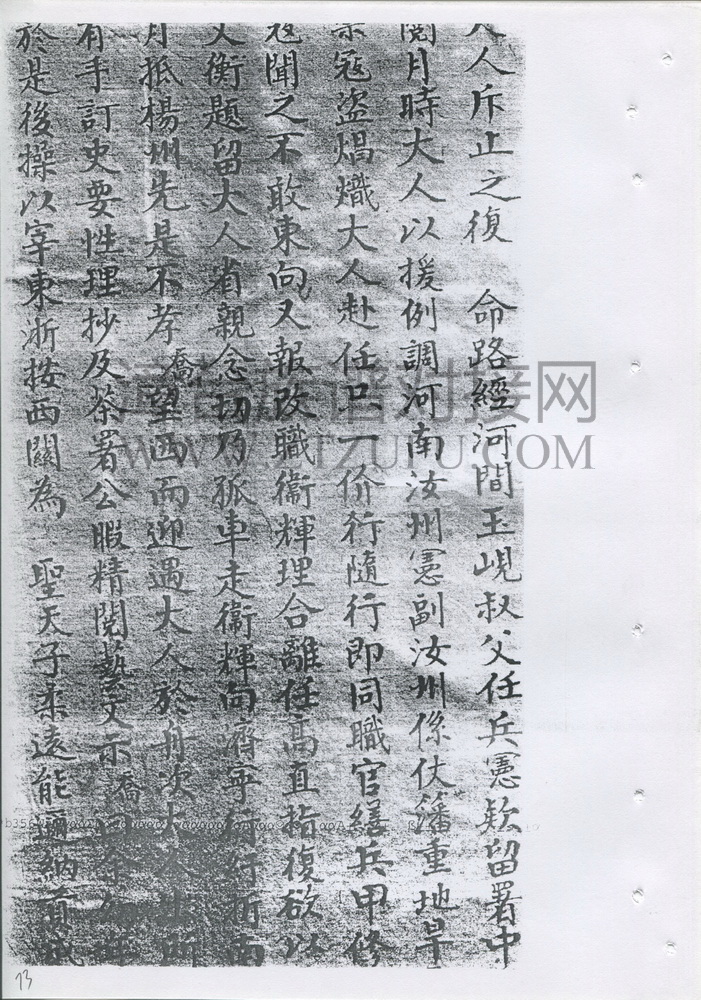 人斥止之復 命路經河間玉峴叔父任兵憲欵留署中
閱月時大人以援例調河南汝州憲副汝州係伏藩重地旱
寇盜熾大人赴任只一价行隨行即同職官繕兵甲修
寇聞之不敢東向又報改職衞輝理合離任高直指復欲以
衡題留大人省親念切乃孤車走衞輝向濟寧
月抵楊州先是不孝喬望西而迎遇大人於舟次大
有手訂史要性理抄及荼署公暇精閱藝文示喬
於是後操以宰東浙按西關為 聖天子柔遠能邇納
WWW.JIZUPU.COM
13